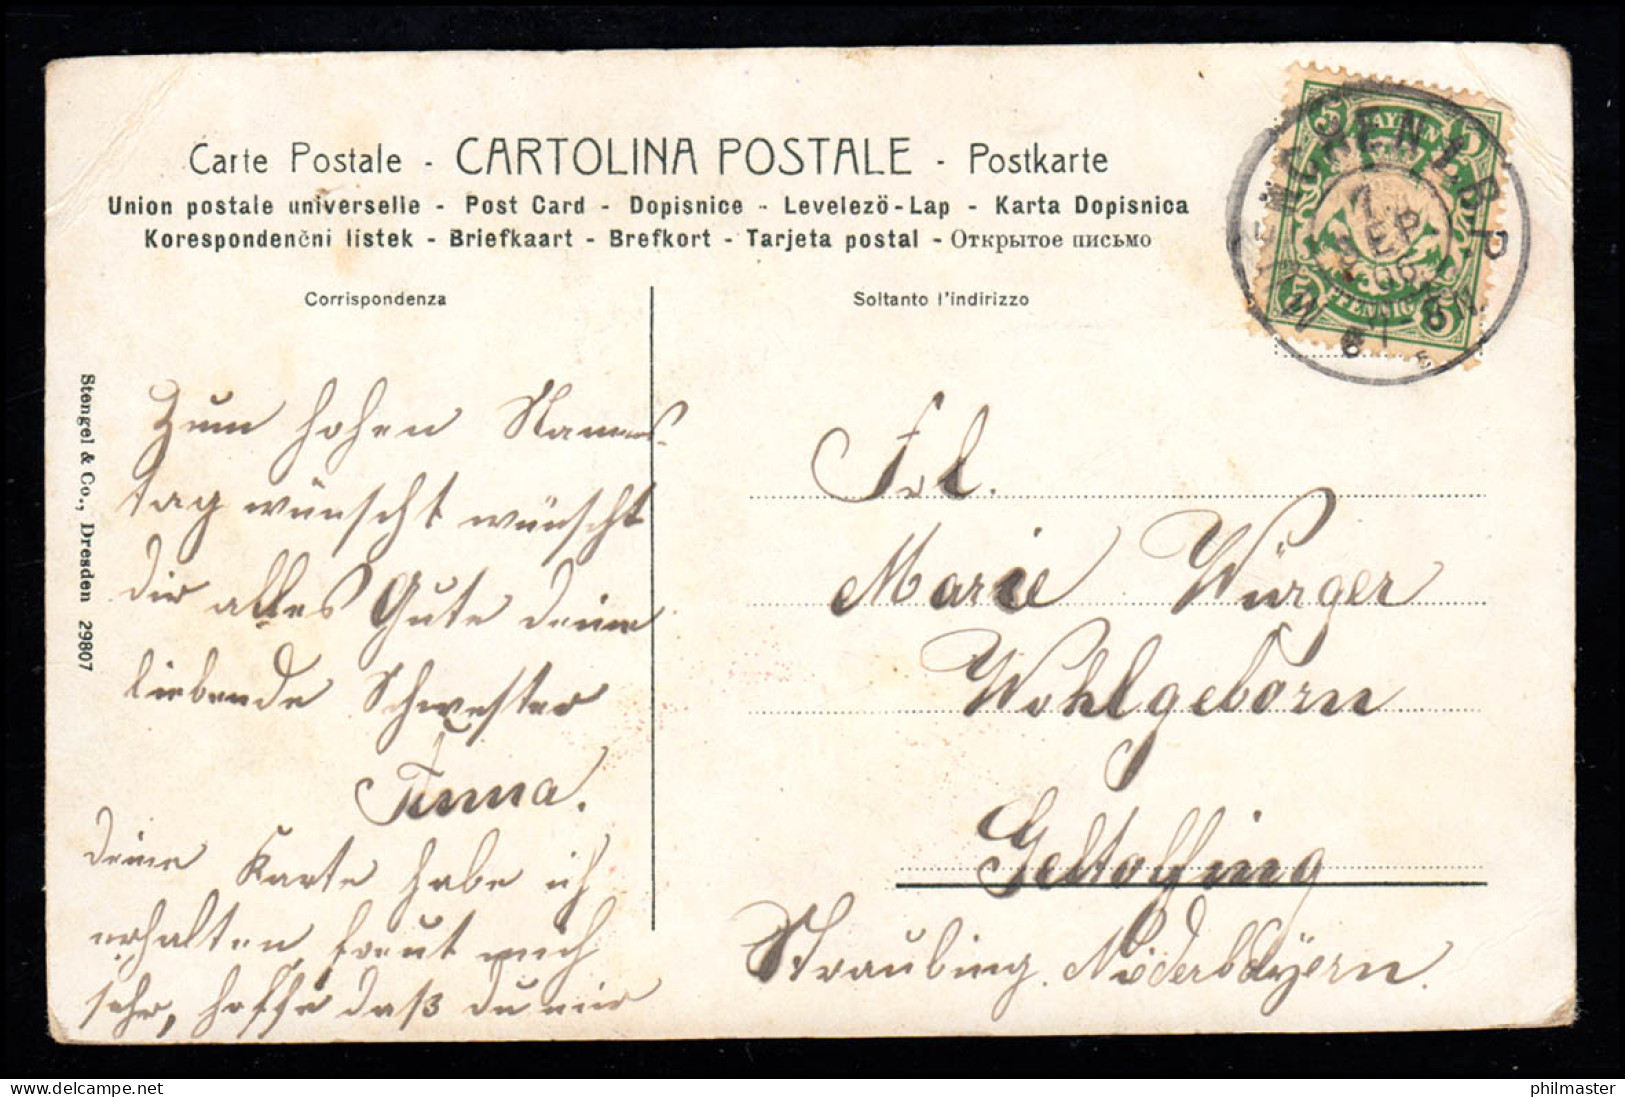 Carte Postale - CARTOLINA POSTALE - Postkarte
Union postale universelle - Post Card - Dopisnice - Levelező-Lap - Karta Dopisnica
Korespondenční lístek - Briefkaart - Brefkort - Tarjeta postal - Открытое письмо
Corrispondenza
Soltanto l'indirizzo
BAYERN
5 5
PFENNIG
MUENCHEN 1. B. P.
7. SEP
06
Stengel & Co., Dresden 29807
Zum hohen Namens-
tag wünscht wünscht
dir alles Gute deine
liebende Schwester
Anna.
Deine Karte habe ich
erhalten, freut mich
sehr, hoffe daß du mir
Frl.
Marie Würger
Wohlgeborn
Geltolfing
Straubing. Niederbayern.
philmaster